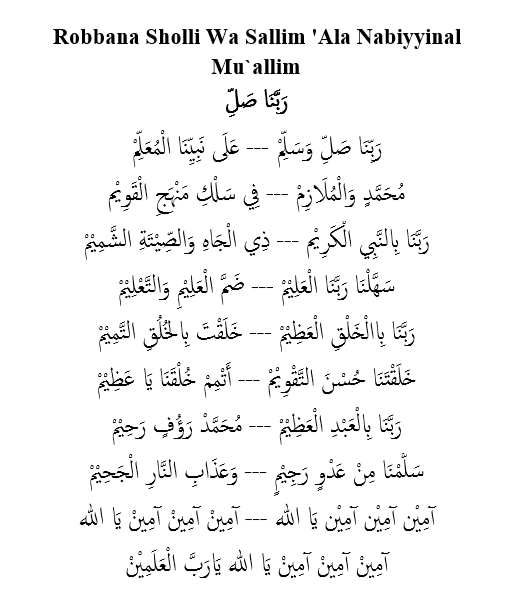 Robbana Sholli Wa Sallim 'Ala Nabiyyinal
Mu`allim
رَبَّنَا صَلِّ
رَبَّنَا صَلِّ وَسَلِّمْ --- عَلَى نَبِيِّنَا الْمُعَلِّمْ
مُحَمَّدٍ وَالْمُلَازِمْ --- فِي سَلْكِ مَنْهَجِ الْقَوِيْم
رَبَّنَا بِالنَّبِي الْكَرِيْم --- ذِي الْجَاهِ وَالصِّيْتَةِ الشَّمِيْمْ
سَهَّلْنَا رَبَّنَا الْعَلِيْمْ --- ضَمَّ الْعَلِيْمِ وَالتَّعْلِيْمْ
رَبَّنَا بِاالْخَلْقِ الْعَظِيْمْ --- خَلَقْتَ بِالْخُلُقِ التَّمِيْمْ
خَلَقْتَنَا حُسْنَ التَّقْوِيْمْ --- أَتْمِمْ خُلْقَنَا يَا عَظِيْمْ
رَبَّنَا بِالْعَبْدِ الْعَظِيْمْ --- مُحَمَّدْ رَؤُفٍ رَحِيْمْ
سَلَّمْنَا مِنْ عَدْوٍ رَجِيْمٍ --- وَعَذَابِ النَّارِ الْجَحِيْمْ
آمِيْن آمِيْن آمِيْن يَا الله --- آمِيْنْ آمِيْنْ آمِيْنْ يَا الله
آمِيْنْ آمِيْنْ آمِيْنْ يَا الله يَارَبَّ الْعَلَمِيْنْ